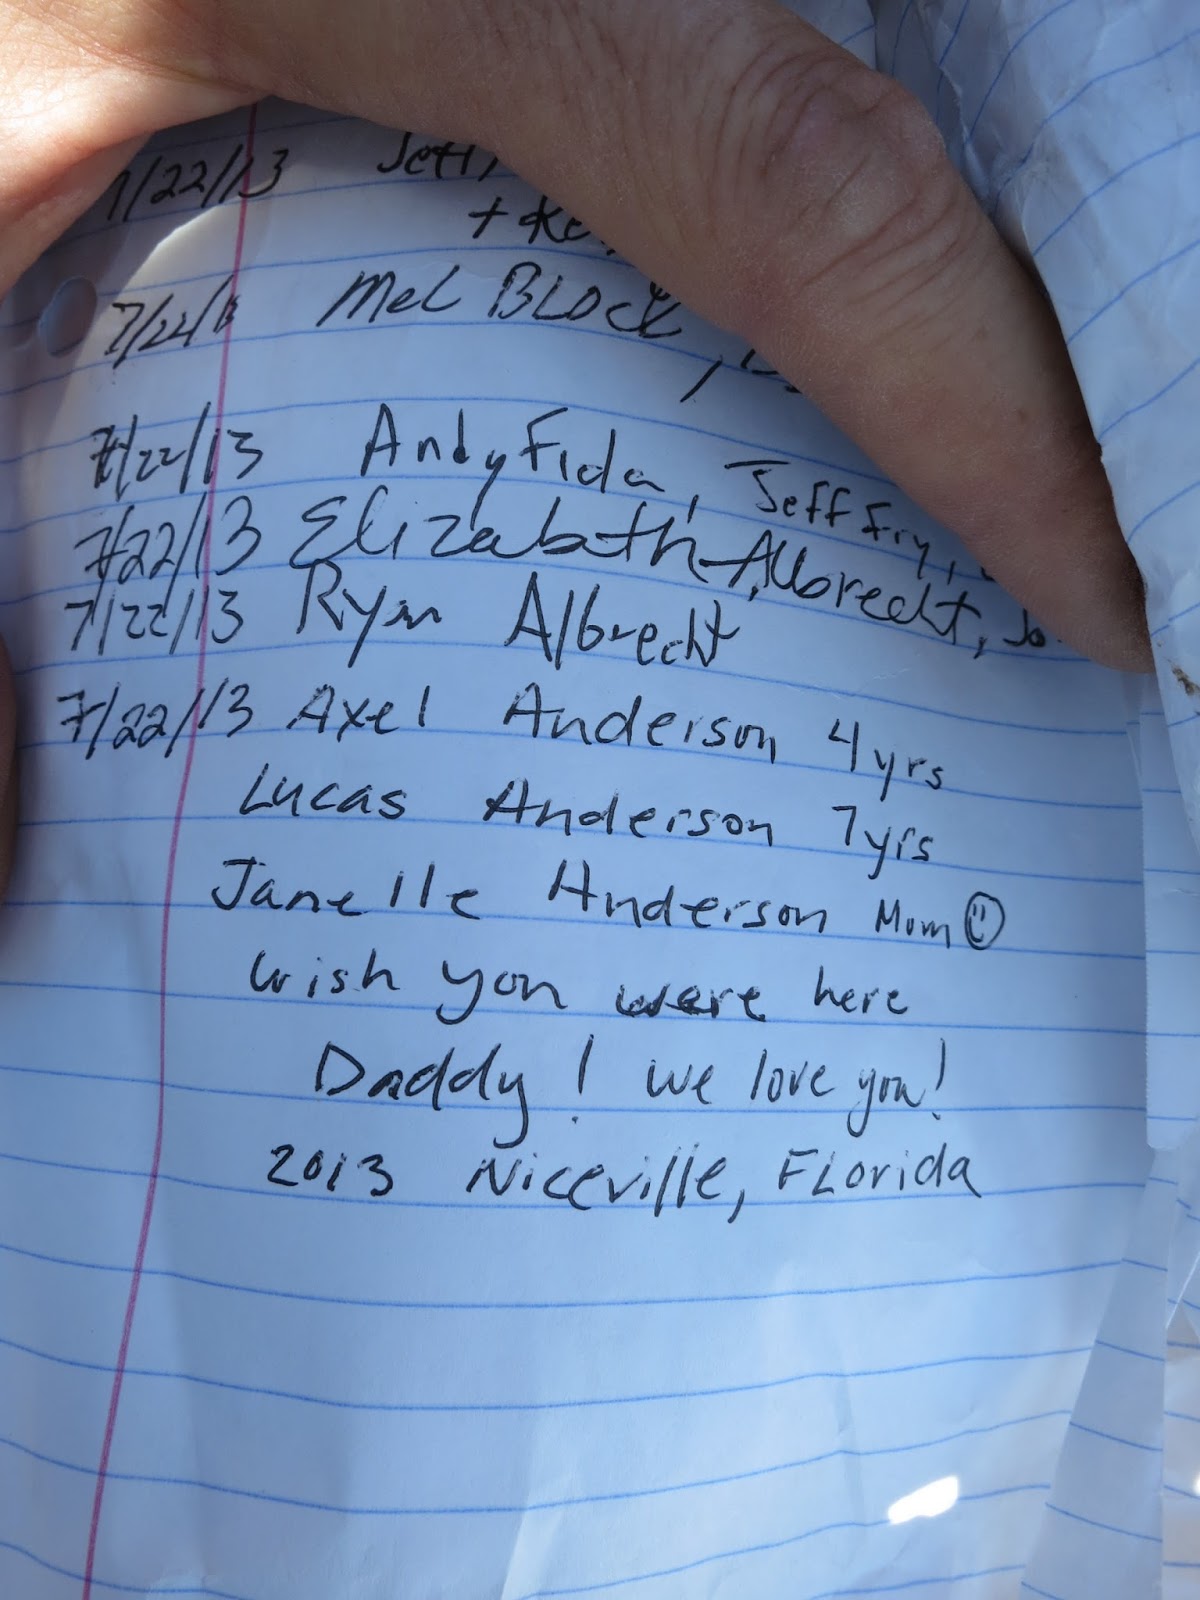 7/22/13
+
7/22/13 Mel Block,
7/22/13 Andy Fida, Jeff Fry,
7/22/13 Elizabeth Albrecht,
7/22/13 Ryan Albrecht
7/22/13 Axel Anderson 4yrs
Lucas Anderson 7yrs
Janelle Anderson Mom ☺
wish you were here
Daddy! we love you!
2013 Niceville, Florida